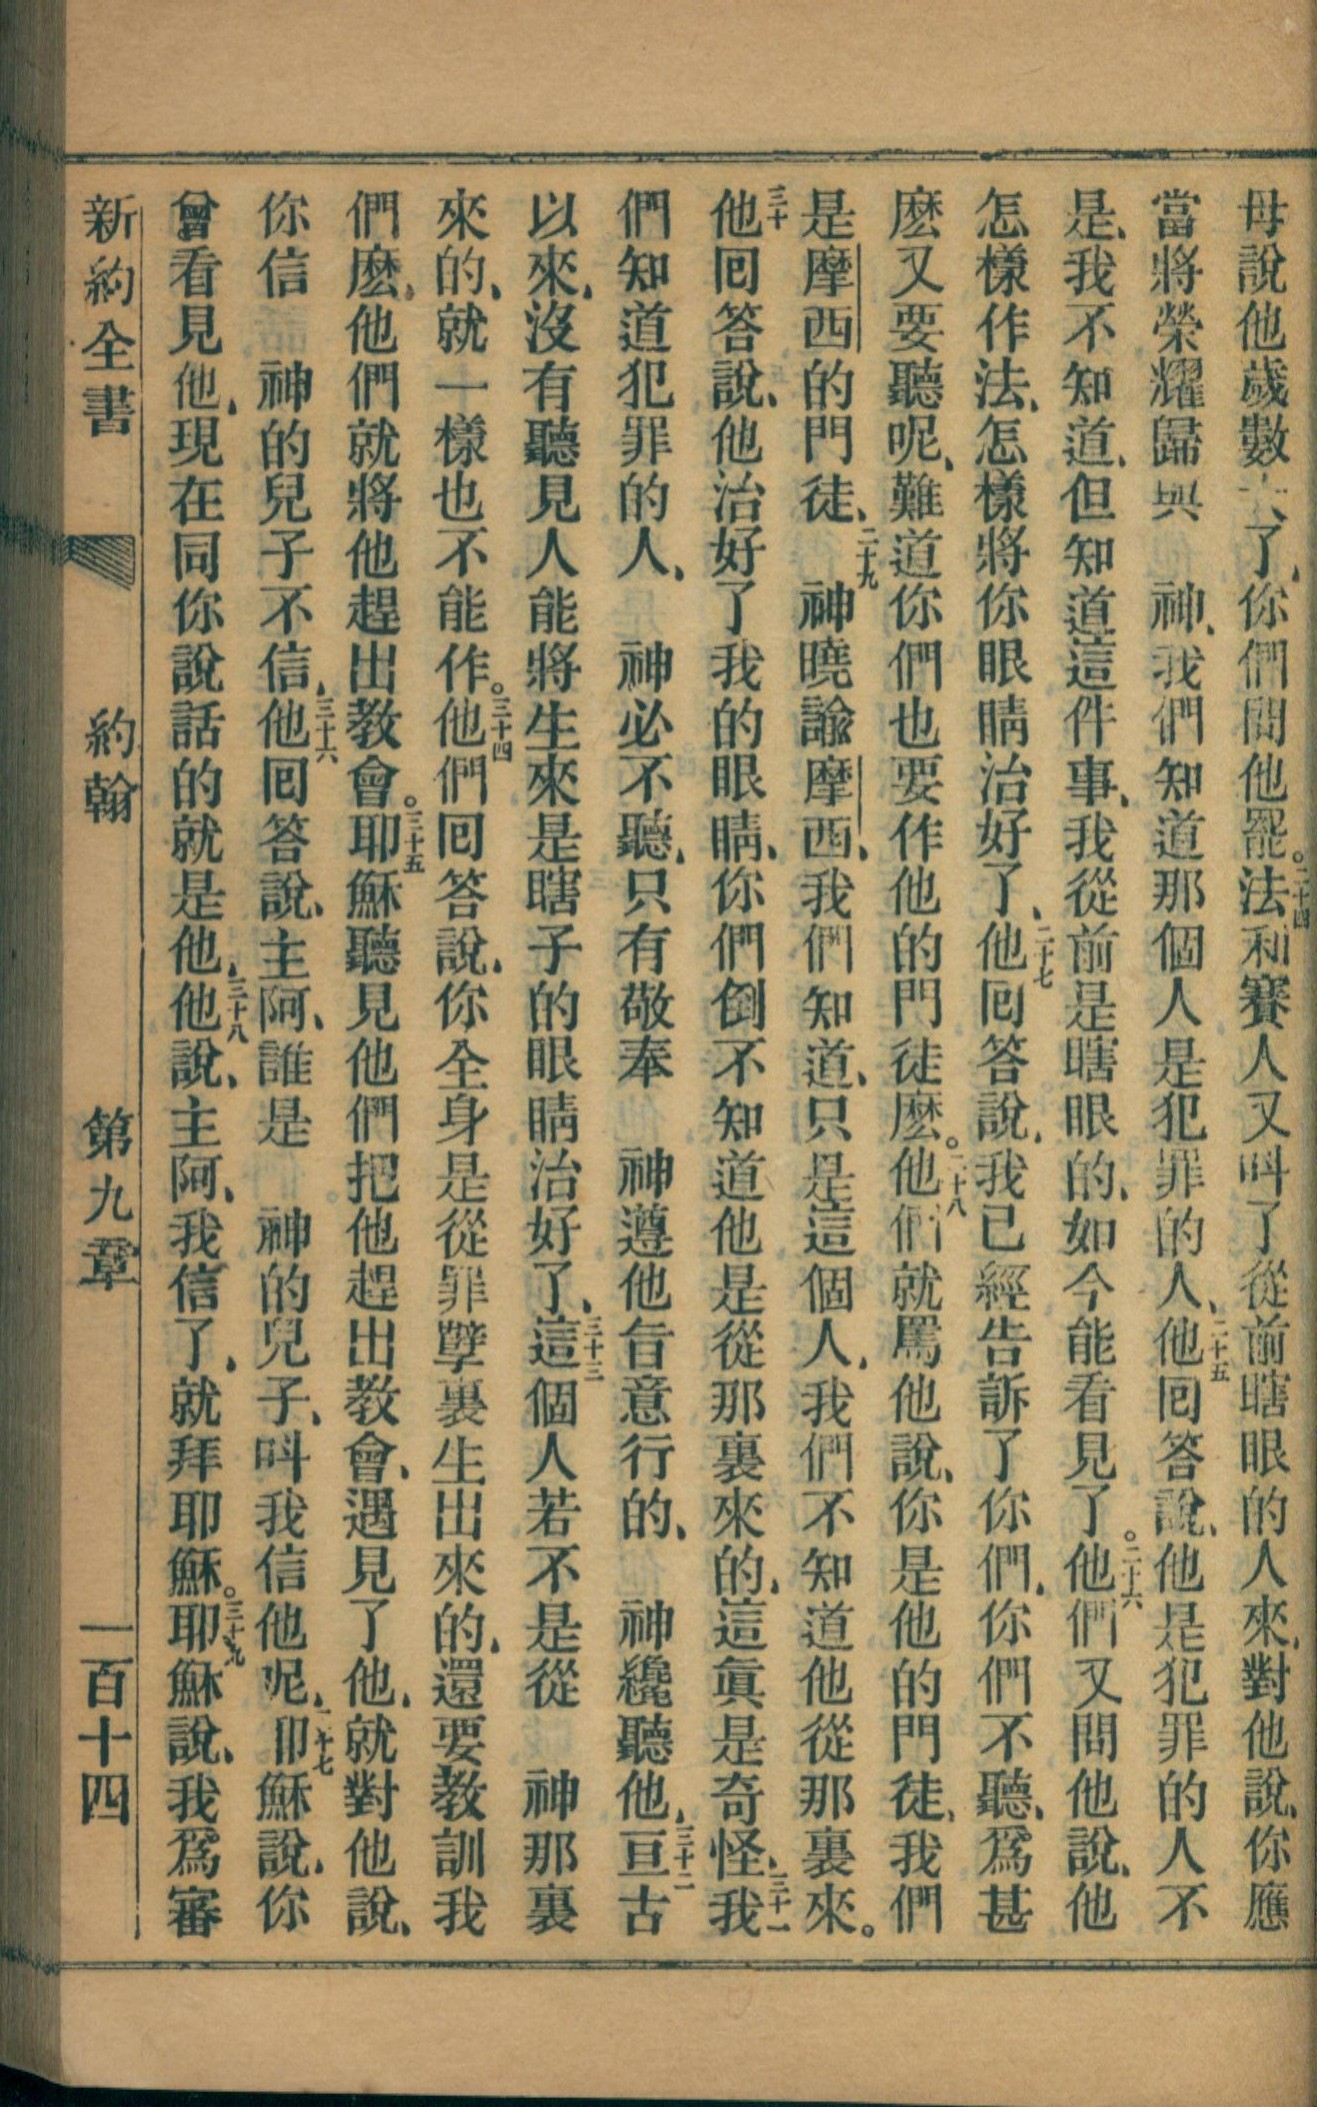 母說他歲數大了、你們問他罷。二十四法利賽人又呌了從前瞎眼的人來、對他說、你應
當將榮耀歸與　神、我們知道那個人是犯罪的人、二十五他回答說、他是犯罪的人不
是、我不知道、但知道這件事、我從前是瞎眼的、如今能看見了。二十六他們又問他說、他
怎樣作法、怎樣將你眼睛治好了、二十七他回答說、我已經告訴了你們、你們不聽、爲甚
麽又要聽呢、難道你們也要作他的門徒麽。二十八他們就罵他說、你是他的門徒、我們
是摩西的門徒、二十九　神曉諭摩西、我們知道、只是這個人、我們不知道他從那裏來。
三十他回答說、他治好了我的眼睛、你們倒不知道他是從那裏來的、這眞是奇怪、三十一我
們知道犯罪的人、　神必不聽、只有敬奉　神遵他旨意行的、　神纔聽他、三十二亘古
以來、沒有聽見人能將生來是瞎子的眼睛治好了、三十三這個人若不是從　神那裏
來的、就一樣也不能作。三十四他們回答說、你全身是從罪孽裏生出來的、還要教訓我
們麽、他們就將他趕出教會。三十五耶穌聽見他們把他趕出教會、遇見了他、就對他說、
你信　神的兒子不信、三十六他回答說、主阿、誰是　神的兒子、呌我信他呢、三十七耶穌說、你
曾看見他、現在同你說話的就是他、三十八他說、主阿、我信了、就拜耶穌。三十九耶穌說、我爲審
新約全書　約翰　第九章　一百十四